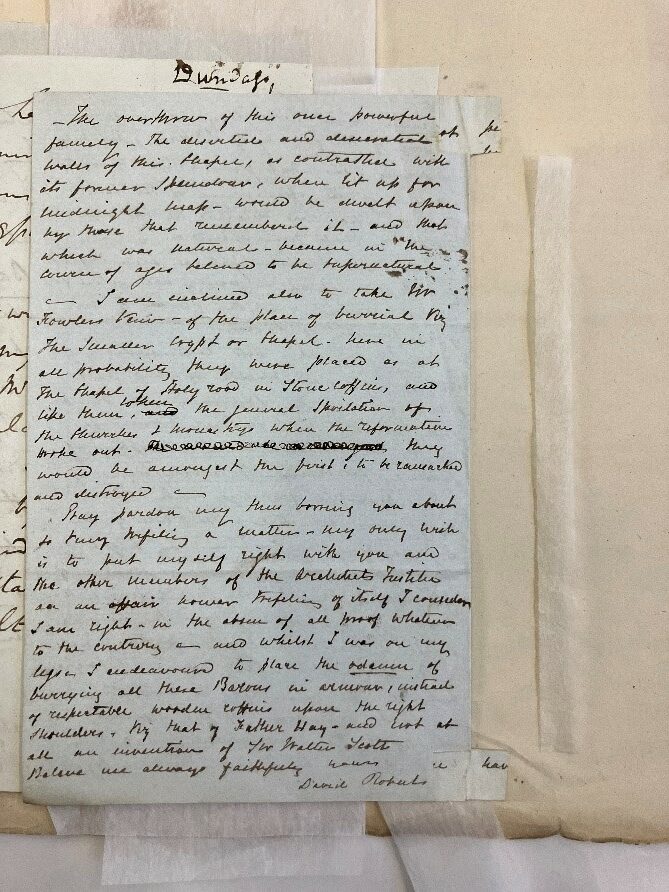 Dundas,
- The overthrow of this once powerful
family - The deserted and desecrated
walls of this Chapel, as contrasted with
its former Splendour, when lit up for
midnight mass - would be dwelt upon
by those that remembered it - and that
which was natural - became in the
course of ages believed to be Supernatural
- I am inclined also to take Mr
Fowlers View - of the place of burrial Viz
The Smaller Crypt or Chapel - here in
all probability they were placed as at
The Chapel of Holyrood in Stone coffins, and
like them, when the general Spoliation of
the Churches & Monastrys when the reformation
broke out - they
would be amongst the first to be ransacked
and distroyed -
Pray pardon my thus boring you about
so very trifeling a matter - my only wish
is to put myself right with you and
the other members of the Architects Institu
as an affair however trifeling of itself I consider
I am right - in the absence of all proof whatever
to the contrary - and whilst I was on my
legs - I endeavoured to place the odium of
burrying all these Barons in armour, instead
of respectable wooden coffins upon the right
shoulders - Viz that of Father Hay - and not at
all an invention of Sir Walter Scott
Believe me always faithfully yours
David Roberts